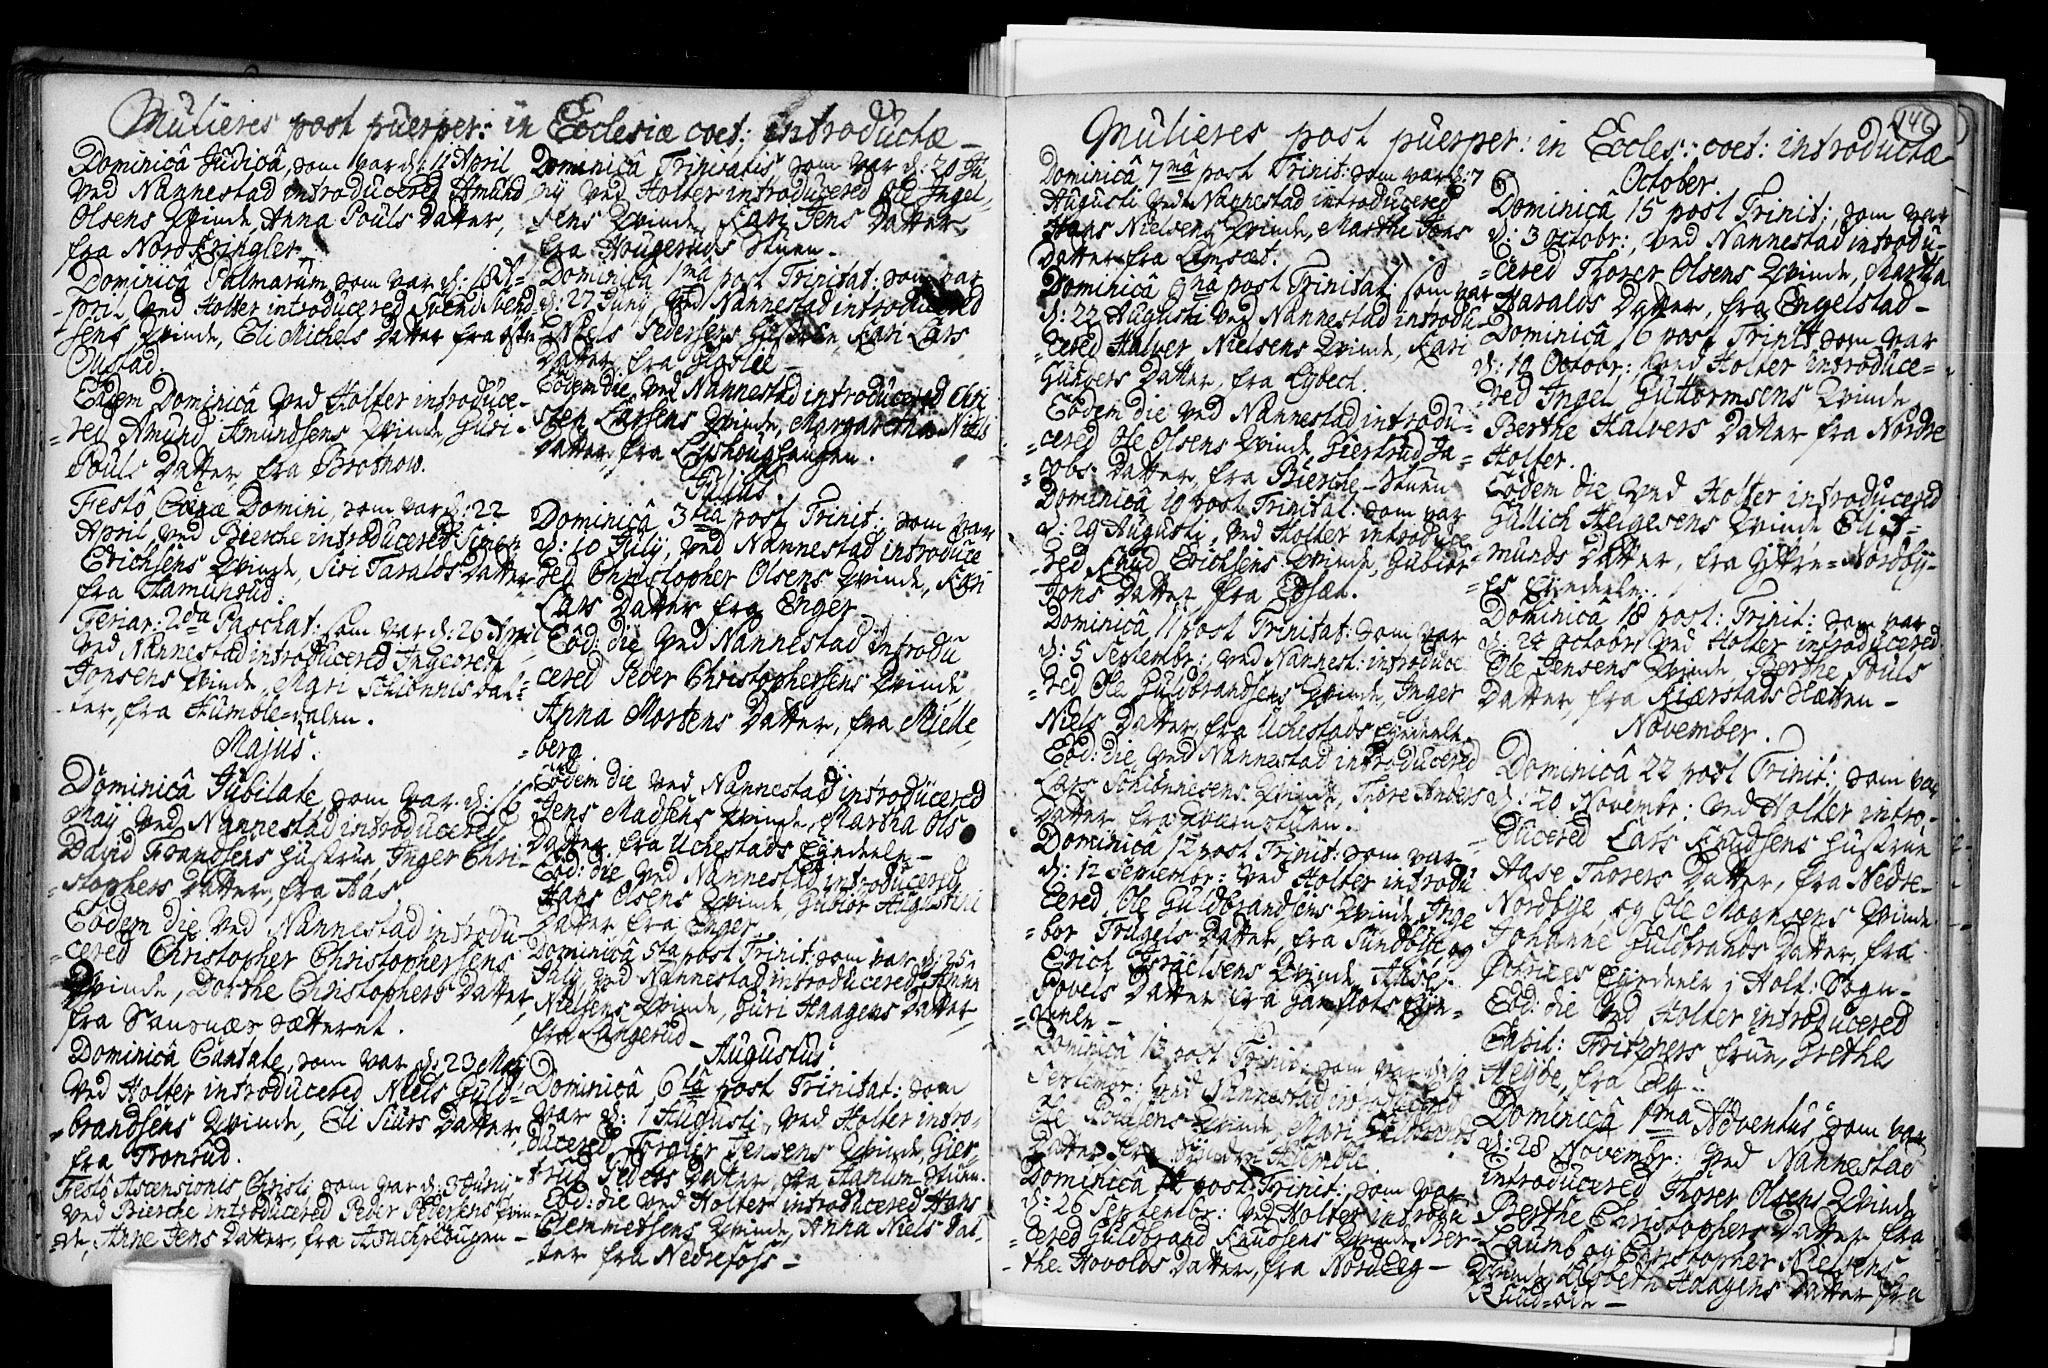 Mulieres post puerper: in Ecclesiæ coet: introductæ
Dominicâ Judicâ, som var d: 11 April
ved Nannestad introducered Amund
Olsens Qvinde, Anna Pouls Datter,
fra Nord Kringler.
Dominicâ Palmarum, som var d: 18 A-
pril, ved Holter introducered Svend Svend
sens Qvinde, Eli Michels Datter fra
Oustad.
Eadem Dominicâ ved Holter introduce-
red Amund Amundsens Qvinde, Guri
Pouls Datter, fra
Festô Cænæ Domini, som var d: 22
April, ved Bierche introducered Simen
Erichsens Qvinde, Siri Haralds Datter
fra Hamunsud.
Feriar: 2da Paschat: som var d: 26 April
ved Nannestad introducered Ingebreth
Jonsens Qvinde, Mari Schiønnis Dat-
ter, fra Humble-dalen.
Majus.
Dominicâ Jubilate, som var d: 16
Maij, ved Nannestad introducered
David Frandsens Hustrue, Inger Chri-
stophers Datter, fra Aas
Eodem die ved Nannestad introdu-
cered Christopher Christophersens
Qvinde, Dorthe Christophers Datter,
fra Sandnæs Sætteret.
Dominicâ Cantate, som var d: 23 Maij
ved Holter introducered Niels Guld-
brandsens Qvinde, Eli Siurs Datter,
fra Tronsud.
Festô Ascensionis Christi som var d: 3 Junij
ved Bierche introducered Peder Pedersens Qvin-
de, Anne Jens Datter, fra
Dominicâ Trinitatis som var d: 20 Ju-
nij ved Holter introducered Ole Ingel-
sens Qvinde, Kari Jens Datter
fra Hougeruds Stuen.
Dominicâ 1ma post Trinitat: som var
d: 27 Junij ved Nannestad introducered
Niels Pedersens Hustrue, Kari Lars
Datter, fra
Eodem die, ved Nannestad introducered Chri
sten Larsens Qvinde, Margaretha Niels
Datter, fra
Julius.
Dominicâ 3tia post Trinit: som var
d: 10 Julij, ved Nannestad introduce
red Christopher Olsens Qvinde, Kari
Lars Datter, fra Enger
Eod: die ved Nannestad introdu
cered Peder Christophersens Qvinde
Anna Mortens Datter, fra Mielle,
berg
Eodem die ved Nannestad introducered
Jens Madsens Qvinde, Martha Ols
Datter, fra Uchestads Eyedeele
Eod: die ved Nannestad introducered
Hans Olsens Qvinde, Gubiør Augustini
Datter fra Enger.
Dominicâ 5ta post Trinit: som var d: 25
Julij, ved Nannestad introducered
Nielsens Qvinde, Guri Haagens Datter
fra Langerud
Augustus.
Dominicâ 6ta post Trinitat: som
var d: 1 Augusti, ved Holter intro-
ducered Torgier Jensens Qvinde, Gier
trud Peders Datter, fra Hanum-Stuen.
Eod: die ved Holter introducered Hans
Clemmetsens Qvinde, Anna Niels Dat-
ter fra Nedrefoss
Mulieres post puerper: in Eccles: coet: introductæ
Dominicâ 7nâ post Trinit: som var d: 7
Augusti ved Nannestad introducered
Haas Nielsens Qvinde, Marthe Jons
Datter fra
Dominicâ 9na post Trinitat: som var
d: 22 Augusti ved Nannestad introdu-
cered Halver Nielsens Qvinde, Kari
Gunners Datter, fra Lybech.
Eodem die ved Nannestad introdu-
cered Ole Olsens Qvinde Giertrud Ja-
cobs: Datter, fra Bierche-Stuen
Dominicâ 10 post Trinitat: som var
d: 29 Augusti, ved Holter introduce
red Knud Erichsens Qvinde, Gubiør
Jons Datter, fra
Dominicâ 11 post Trinitat: som var
d: 5 Septembr: ved Nannest: introduce
red Ole Guldbrandsens Qvinde, Inger
Niels Datter, fra Uchestads Eyedeele.
Eod: die, ved Nannestad introducered
Lars Schiønnesens Qvinde, Thore Anders
Datter fra Qvernstuen.
Dominicâ 12 post Trinit: som var
d: 12 Septembr: ved Holter introdu
cered, Ole Guldbrandsens Qvinde, Inge
bor Trugels Datter, fra Sundbye og
Erich Israelsens Qvinde, Aase
Povels Datter fra
deele
Dominicâ 13 post Trinit: som var d: 19
Septembr: ved Nannestad introducered
Ole Poulsens Qvinde Mari
Datter, fra Humble.
Dominicâ 14 post Trinit: som var
d: 26 Septembr: ved Holter introdu
cered Guldbrand Knudsens Qvinde, Ber-
the Hovolds Datter, fra Nord Eeg
146
October
Dominicâ 15 post Trinit: som var
d: 3 Octobr:, ved Nannestad introdu-
cered Thorer Olsens Qvinde, Martha
Haralds Datter, fra Engelstad
Dominicâ 16 post Trinit som var
d: 10 Octobr:, ved Holter introduce-
red Ingel Guttormsens Qvinde
Berthe Halvers Datter fra Nordre
Holter.
Eodem die ved Holter introducered
Gullich Helgesens Qvinde Eli A-
munds Datter, fra Nordby-
es Eyedeele.
Dominicâ 18 post: Trinit: som var
d: 24 Octobr: ved Holter introducered
Ole Jensens Qvinde, Berthe Pouls
Datter, fra Kierstads Hætten
November.
Dominicâ 22 post Trinit: som var
d: 20 Novembr: ved Holter intro-
ducered Lars Knudsens Hustrue
Aase Thorers Datter, fra Nedre-
Nordbye og Ole Mognsens Qvinde
Johanne Guldbrands Datter, fra
Eyedeele i Holt: Sogn
Eod: die ved Holter introducered
Capit: Fritzners Frue, Brethe
Heyde, fra Eeg
Dominicâ 1ma Adventus som var
d: 28 Novembr: ved Nannestad
introducered Thorer Olsens Qvinde
Berthe Christophers Datter fra
Laumb og Christopher Nielsens
Qvinde Elsbeth Haagens Datter fra
Ruud-